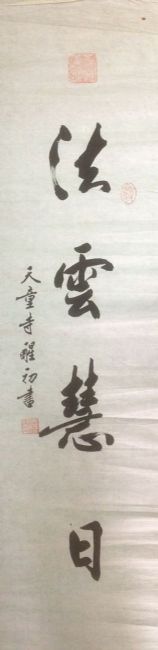 法雲慧日
天童寺醒初書